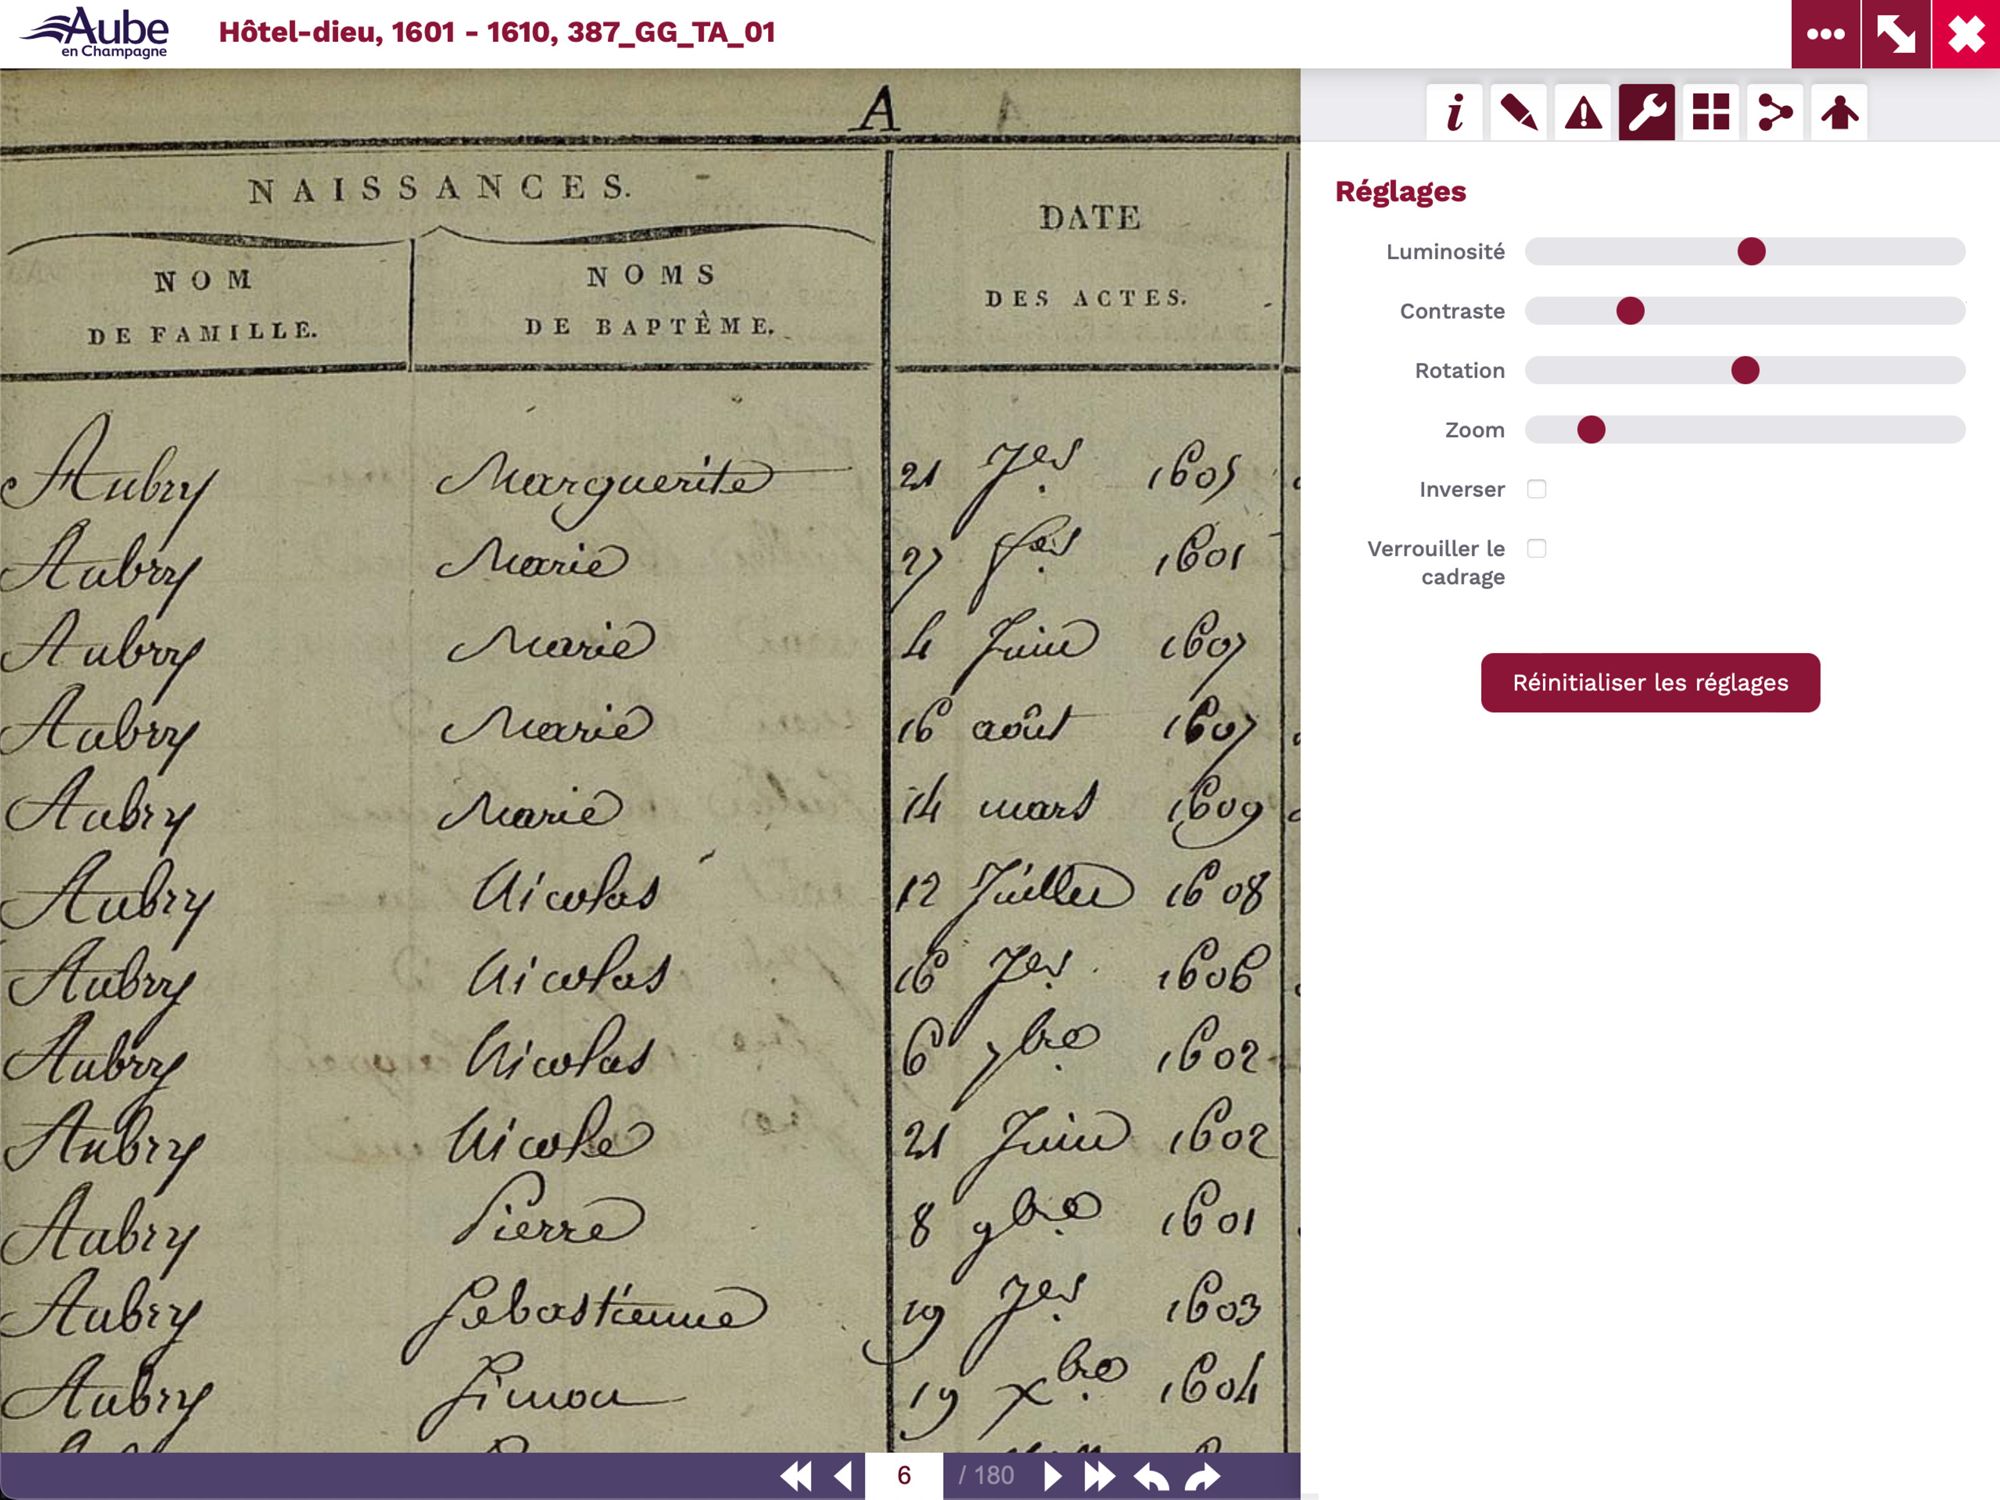 Aube
en Champagne
Hôtel-dieu, 1601 - 1610, 387_GG_TA_01
A
NAISSANCES.
NOM DE FAMILLE.
NOMS DE BAPTÊME.
DATE DES ACTES.
Aubry Marguerite 21 Jer 1605
Aubry Marie 27 1601
Aubry Marie 4 Juin 1607
Aubry Marie 16 août 1607
Aubry Marie 14 mars 1609
Aubry Nicolas 12 Juillet 1608
Aubry Nicolas 16 Jer 1606
Aubry Nicolas 6 7bre 1602
Aubry Nicole 21 Juin 1602
Aubry Pierre 8 9bre 1601
Aubry Sebastienne 19 Jer 1603
Aubry Simon 19 Xbre 1604
6 / 180
Réglages
Luminosité
Contraste
Rotation
Zoom
Inverser
Verrouiller le
cadrage
Réinitialiser les réglages